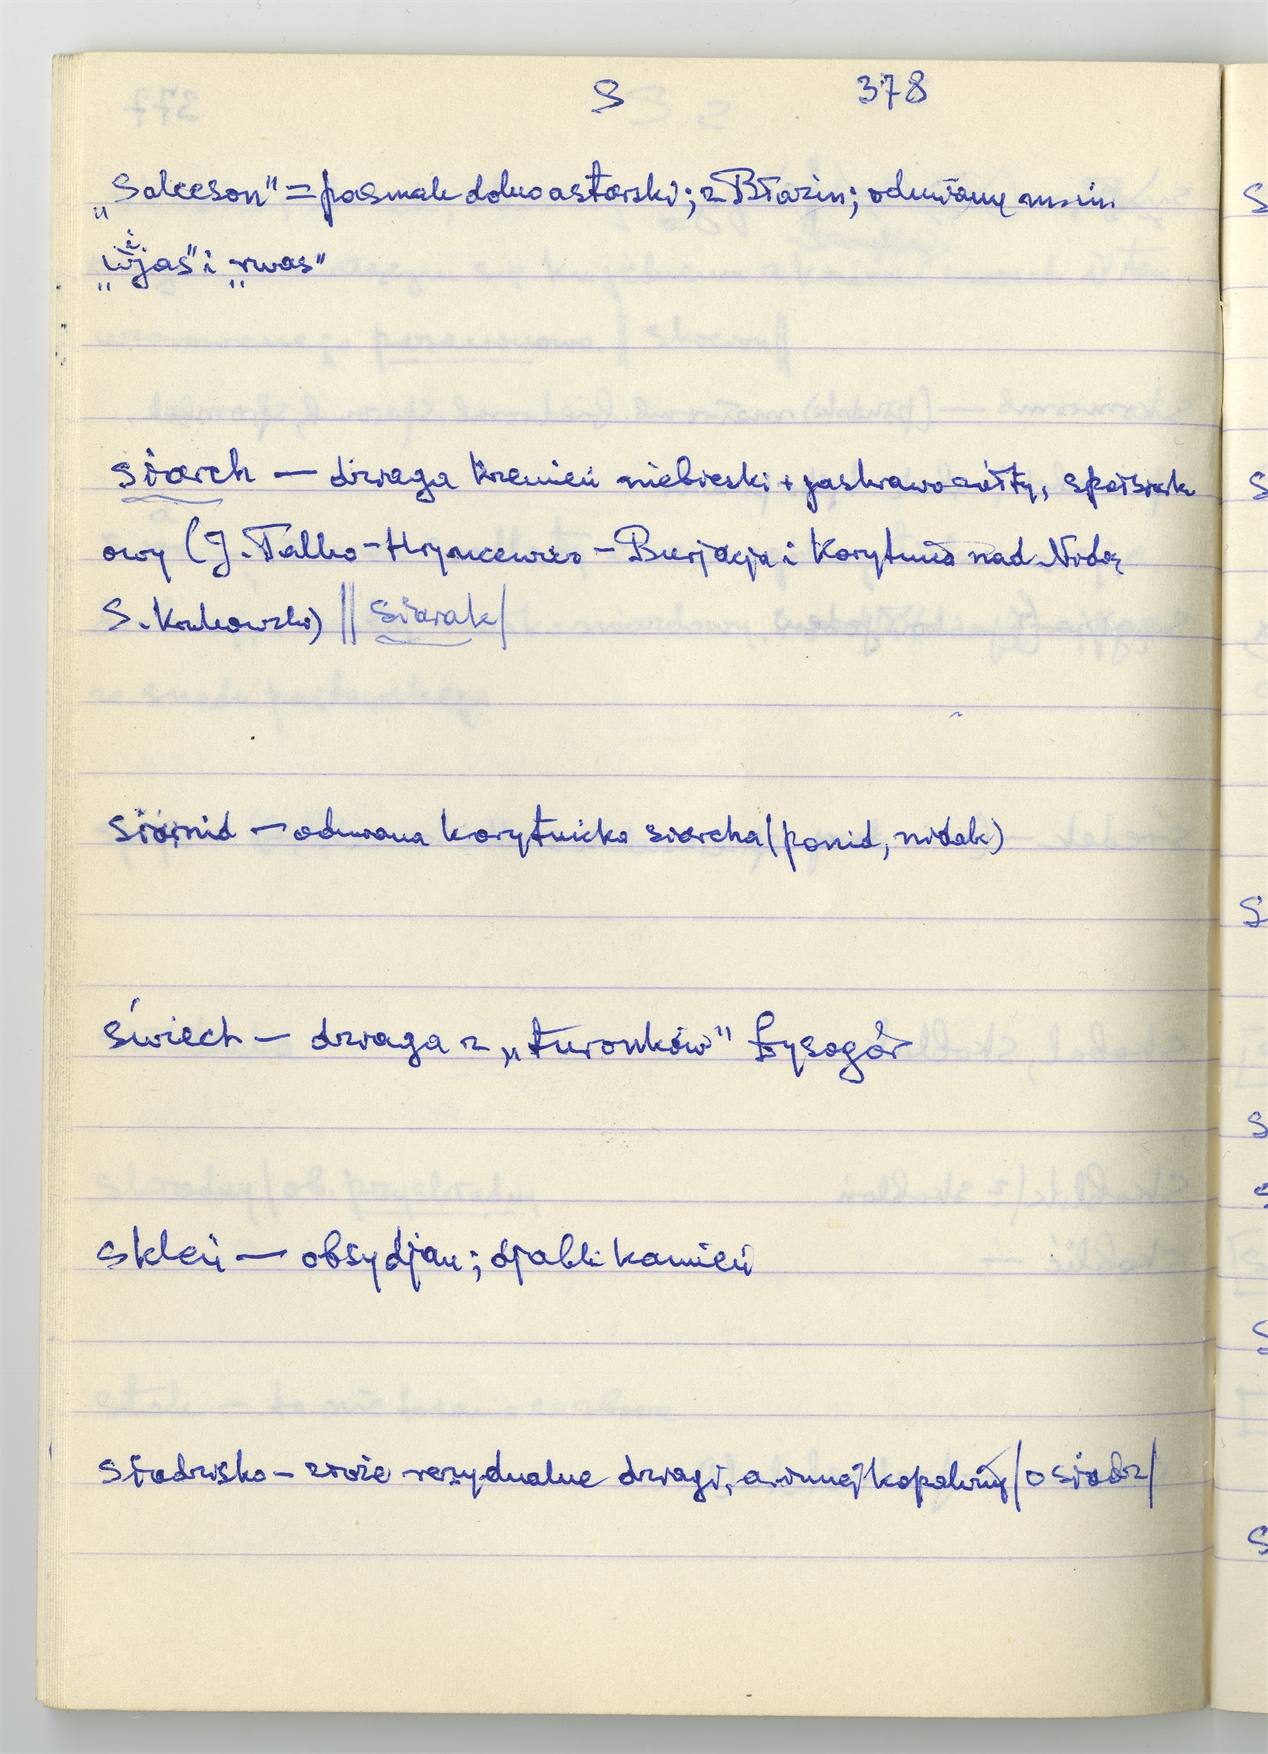 S 378
„Salceson" = pasmak dolno astarski; z Błazin; odmianę m. in.
„wijas" i „rwas"
siarch — dzwaga krzemień niebieski + jaskrawo żółty,
owy (J. Talko-Hryncewicz – Burjacja i Korytnica nad Nidą
S. Krukowski) || siarak|
siarnid — odmiana korytnicka siarcha (ponid, nidak)
świech — dzwaga z „turonków" Łysogór
skleń — obsydjan; djabli kamień
siadzisko – złoże rezydualne dzwagi, a innej kopaliny |osiadz|